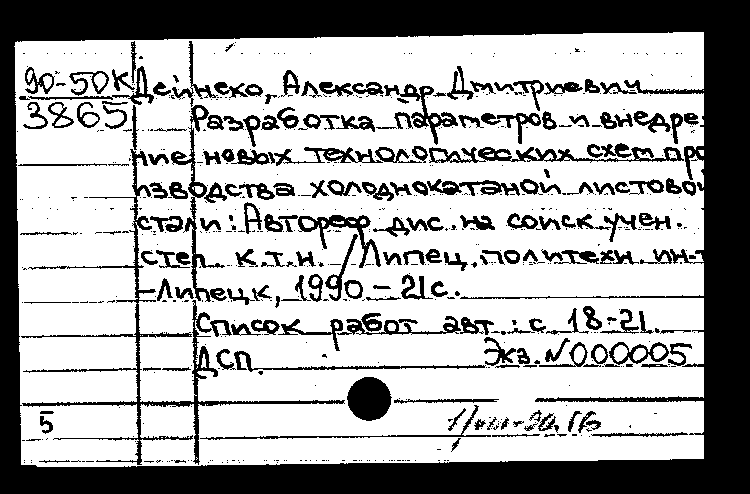 90-50К Дейнеко, Александр Дмитриевич
3865 Разработка параметров и внедре
ние новых технологических схем про
изводства холоднокатаной листовой
стали: Автореф дис. на соиск. учен.
степ. к.т.н. / Липец. политехн. ин-т
-Липецк, 1990. - 21с.
Список работ авт.: с. 18-21.
ДСП. Экз. N000005
5